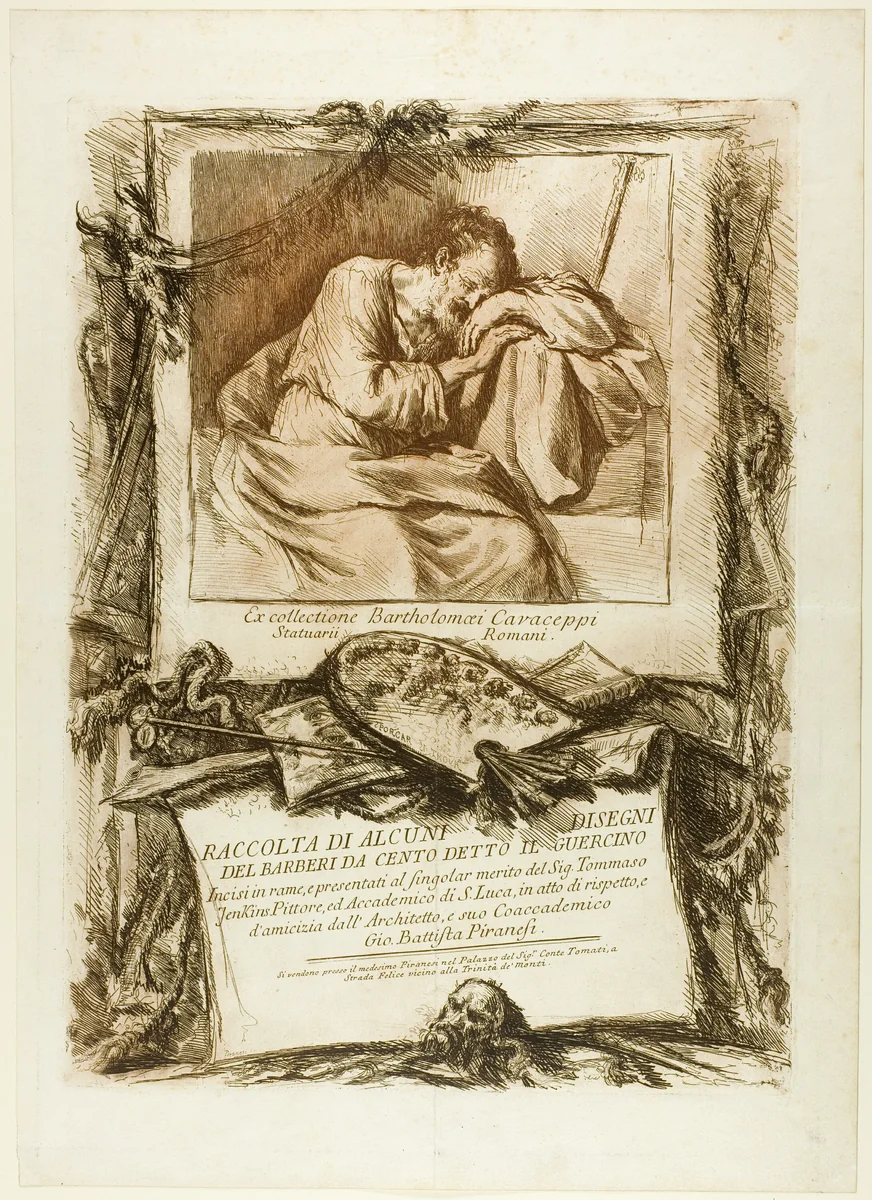 Ex collectione Bartholomæi Cavaceppi
Statuarii Romani.
RACCOLTA DI ALCUNI DISEGNI
DEL BARBERI DA CENTO DETTO IL GUERCINO
Incisi in rame, e presentati al ſingolar merito del Sig. Tommaso
Jenkins Pittore, ed Accademico di S. Luca, in atto di rispetto, e
d'amicizia dall' Architetto, e suo Coaccademico
Gio. Battiſta Piraneſi.
Si vendono presso il medesimo Piranesi nel Palazzo del Sigr. Conte Tomati, a
Strada Felice vicino alla Trinità de' Monti.